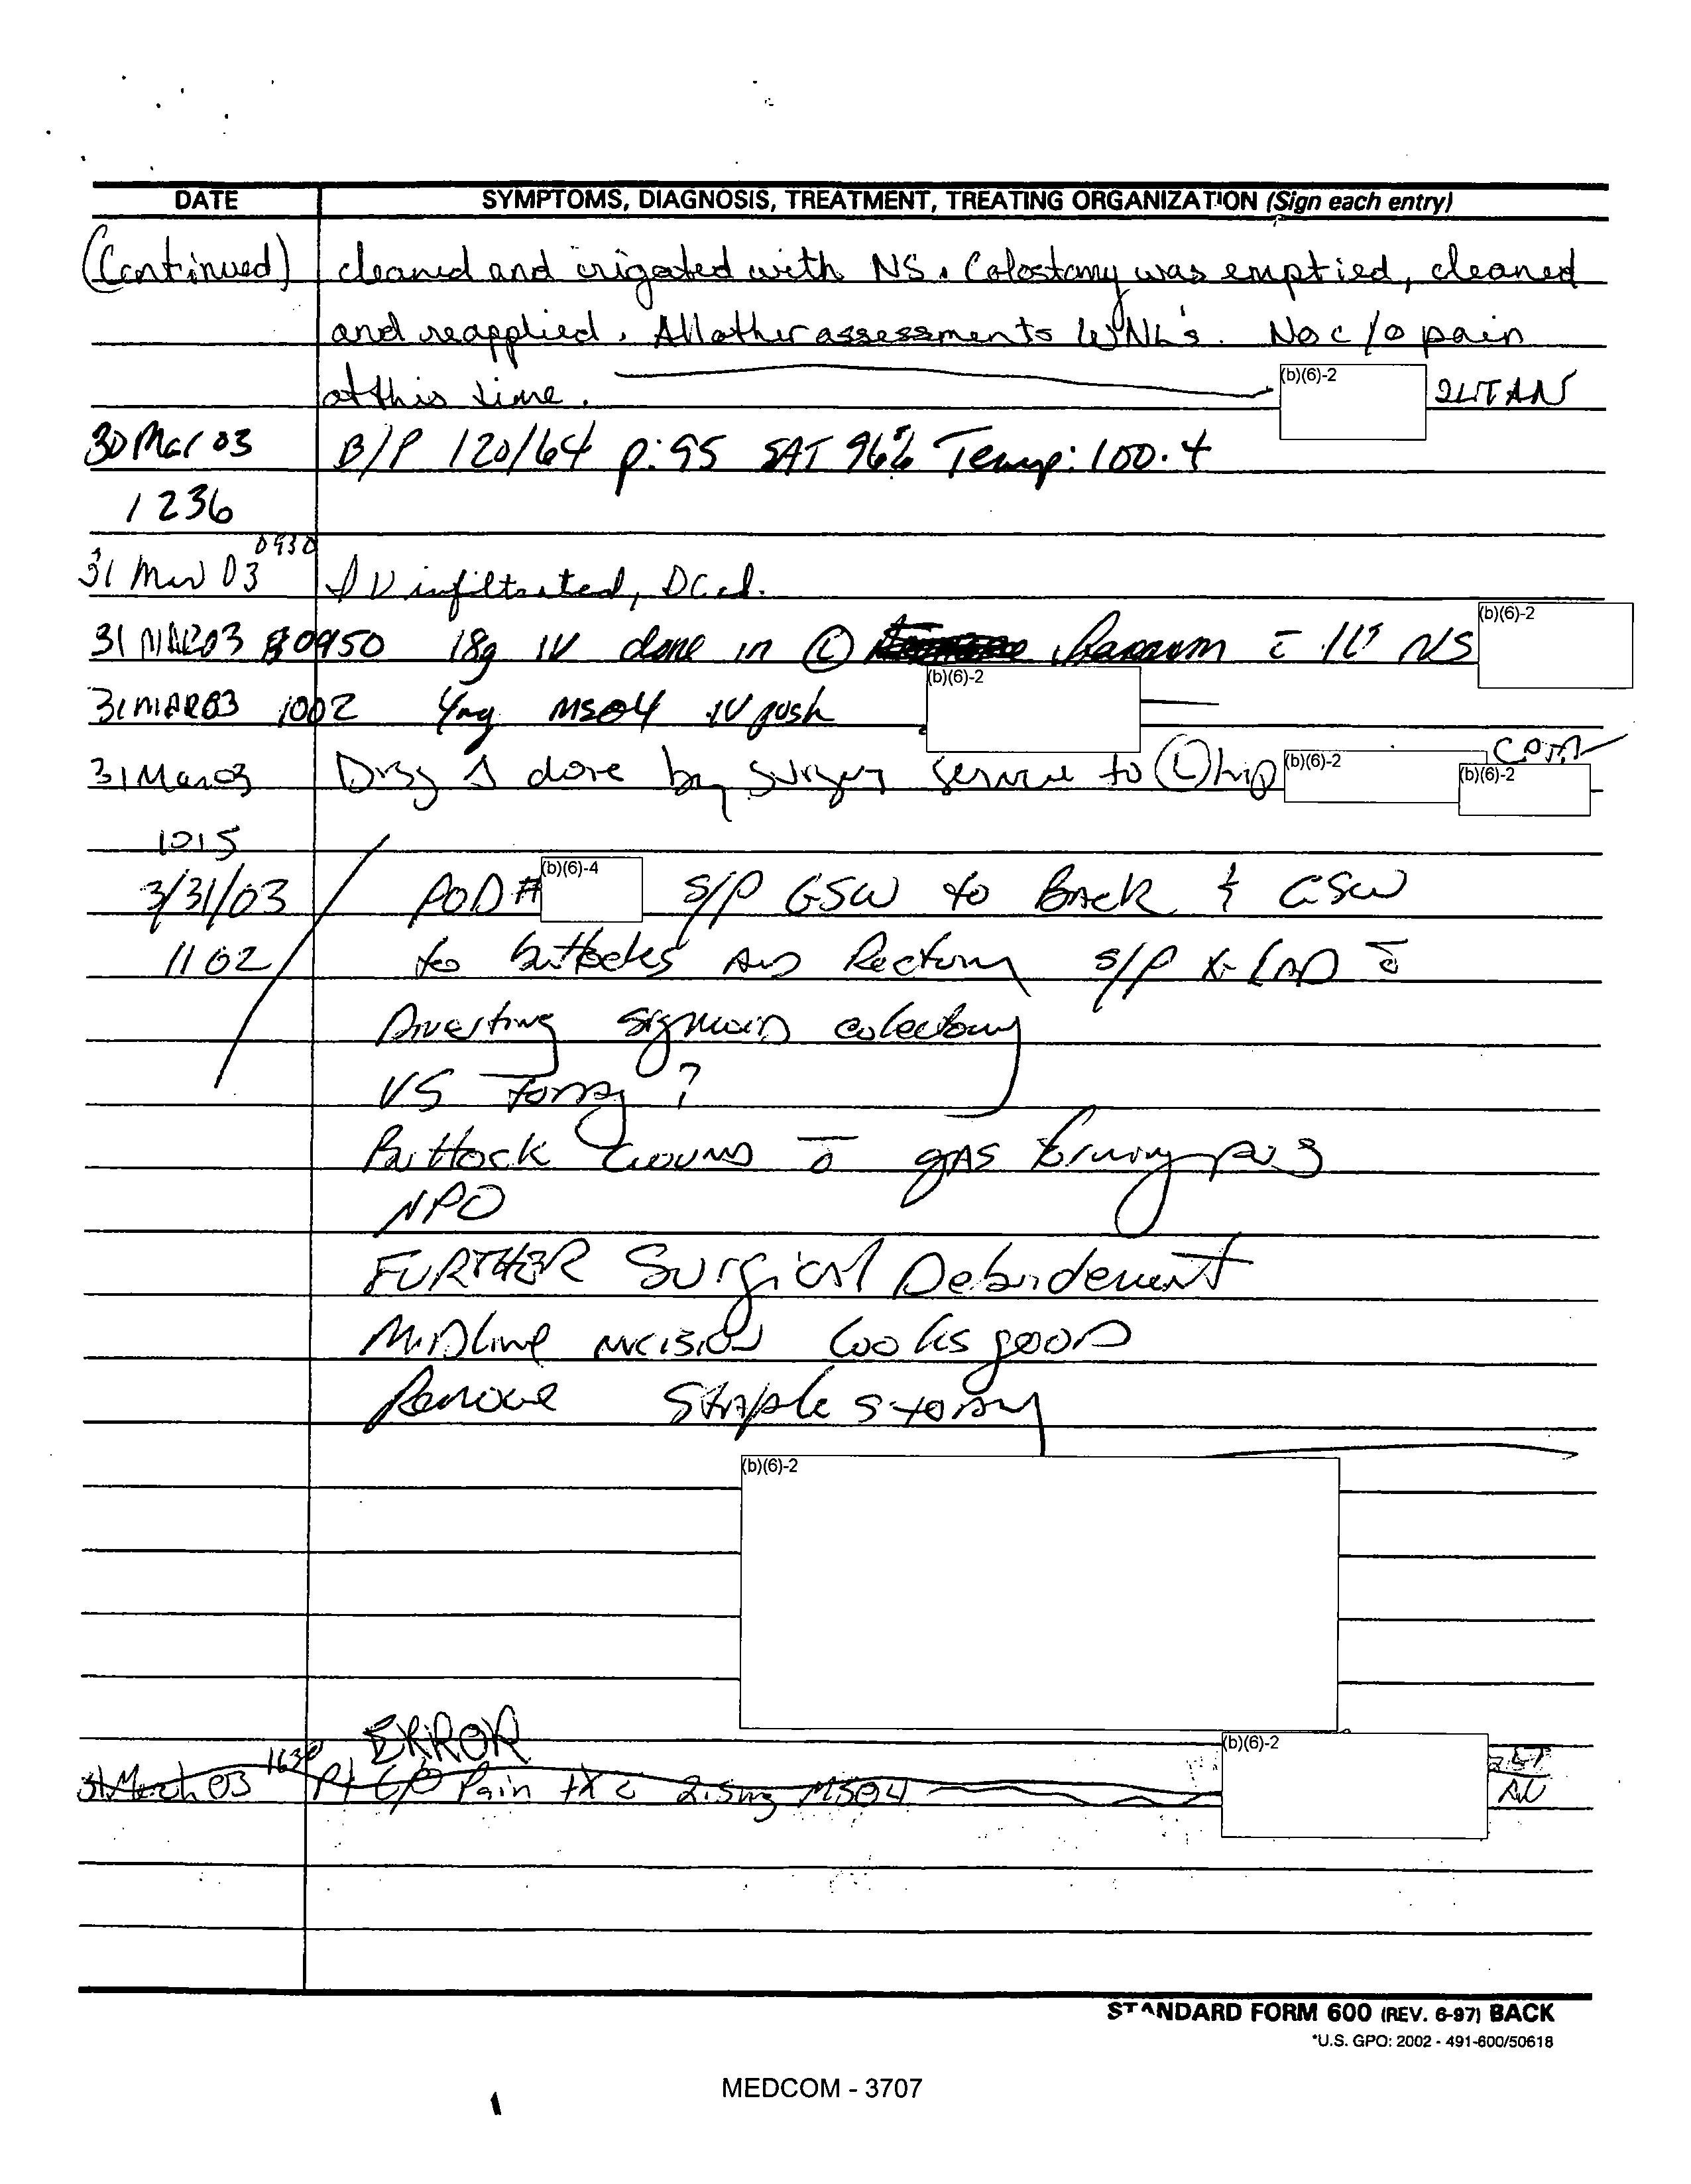 DATE SYMPTOMS, DIAGNOSIS, TREATMENT, TREATING ORGANIZATION (Sign each entry)
(Continued) cleaned and irigated with NS. Colostomy was emptied, cleaned
and reapplied. All other assessments WNL's. No c/o pain
at this time. (b)(6)-2 2LT AN
30 Mar 03 B/P 120/64 p: 95 SAT 96% Temp: 100.4
1236
31 Mar 03 0930 IV infiltrated, DCed.
31 MAR 03 0950 18g IV done in (L) c̄ NS (b)(6)-2
31 MAR 03 1002 4mg MSO4 IV push (b)(6)-2
31 Mar 03 Drsg Δ done by surgery service to (L) hip (b)(6)-2 (b)(6)-2
1015
3/31/03 POD # (b)(6)-4 s/p GSW to Back & GSW
1102 to buttocks and Rectum s/p X-LAP c̄
Diverting sigmoid
VS
Buttock wound c̄ gas forming
NPO
FURTHER Surgical Debridement
Midline incision looks good
Remove Staples
(b)(6)-2
ERROR
31 March 03 1630 Pt C/O Pain tx c̄ 2.5mg MSO4 (b)(6)-2
STANDARD FORM 600 (REV. 6-97) BACK
*U.S. GPO: 2002 - 491-600/50618
MEDCOM - 3707